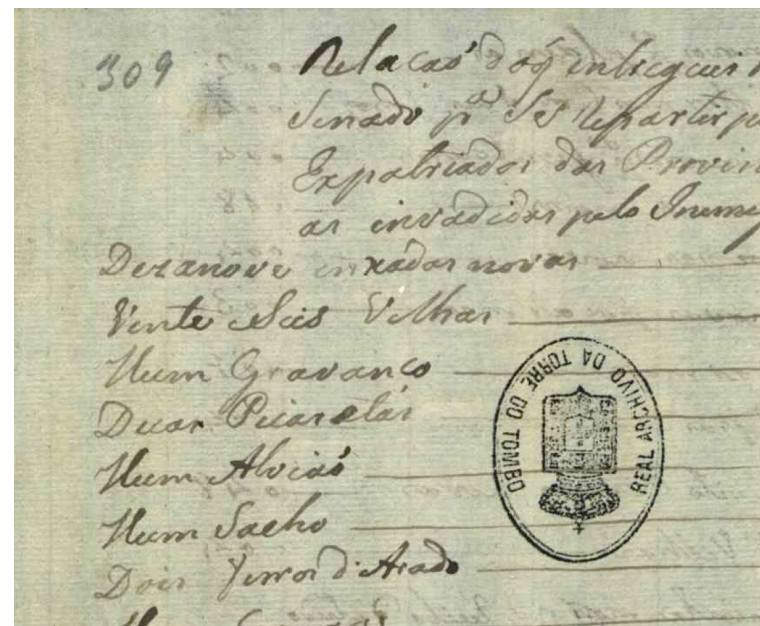 309
Relacaõ do q̃ entregue
Senado pª Se Repartir p
Expatriados das Provin
as invadidas pelo Inemi
Dezanove enxadas novas
Vente e Seis Velhas
Hum Gravanco
Duas Picaretas
Hum Alviaõ
Hum Sacho
Dois Ferros d'Arado
REAL ARCHIVO DA TORRE DO TOMBO